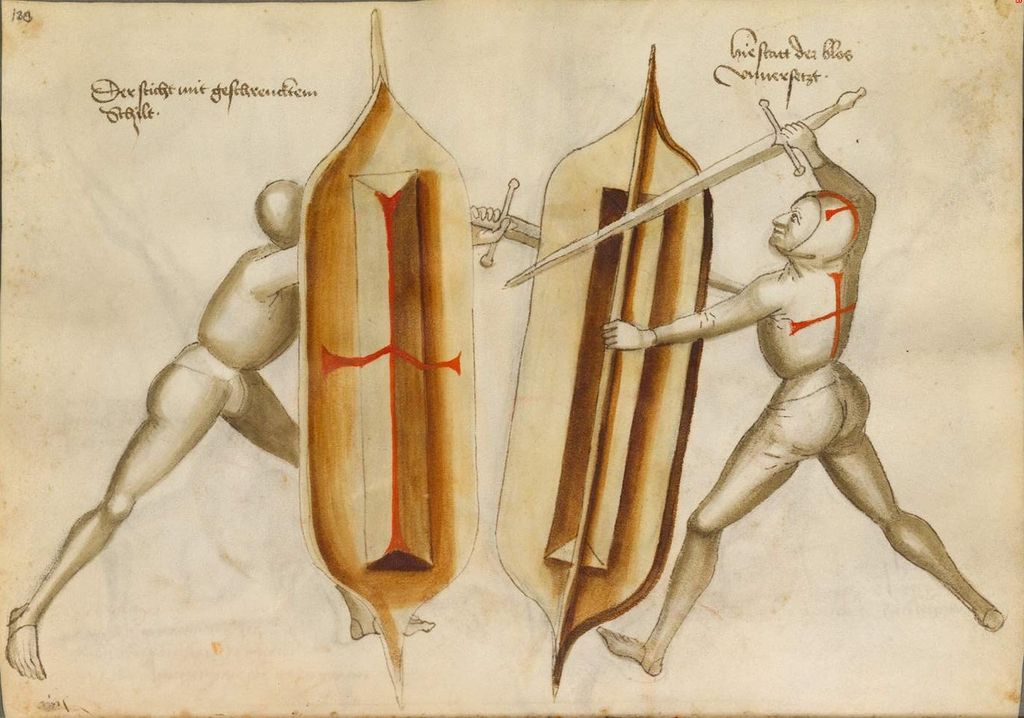 123
Der sticht mit geschrencktem
Schilt.
hie statt der blos
vnuersetzt.